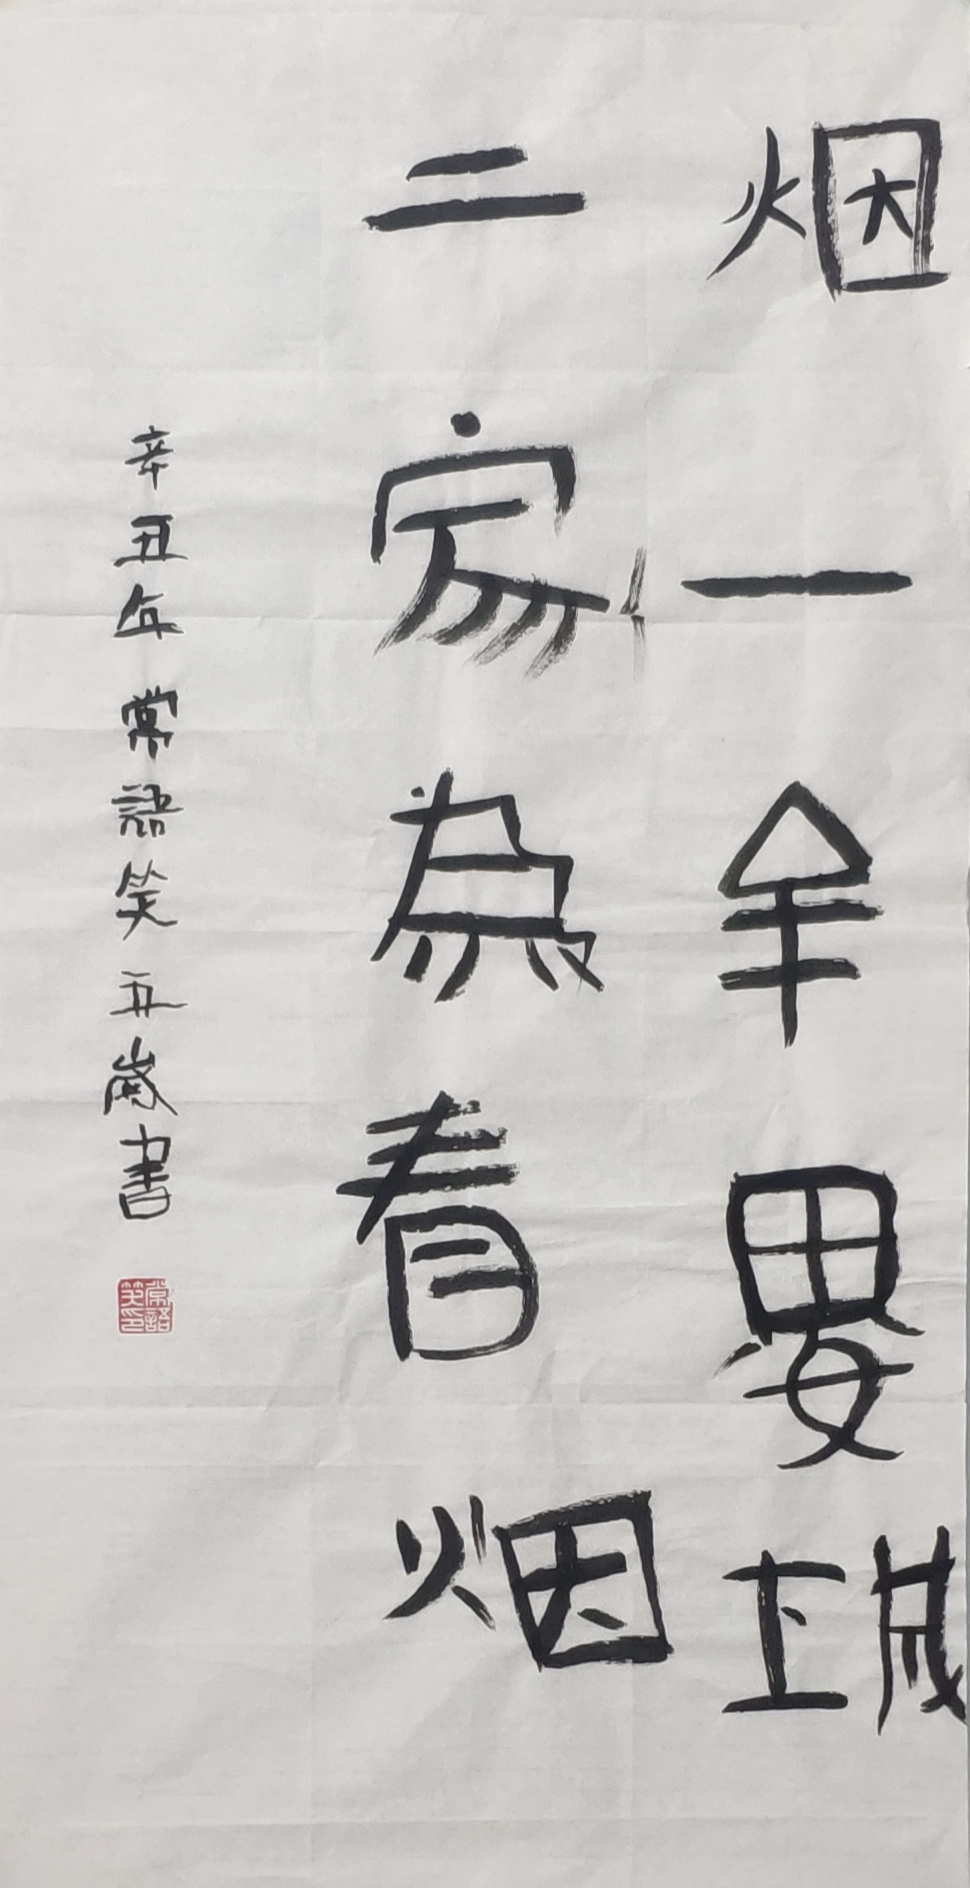 烟一全要城
二家為看烟
辛丑年常語笑五歲書
常語笑印